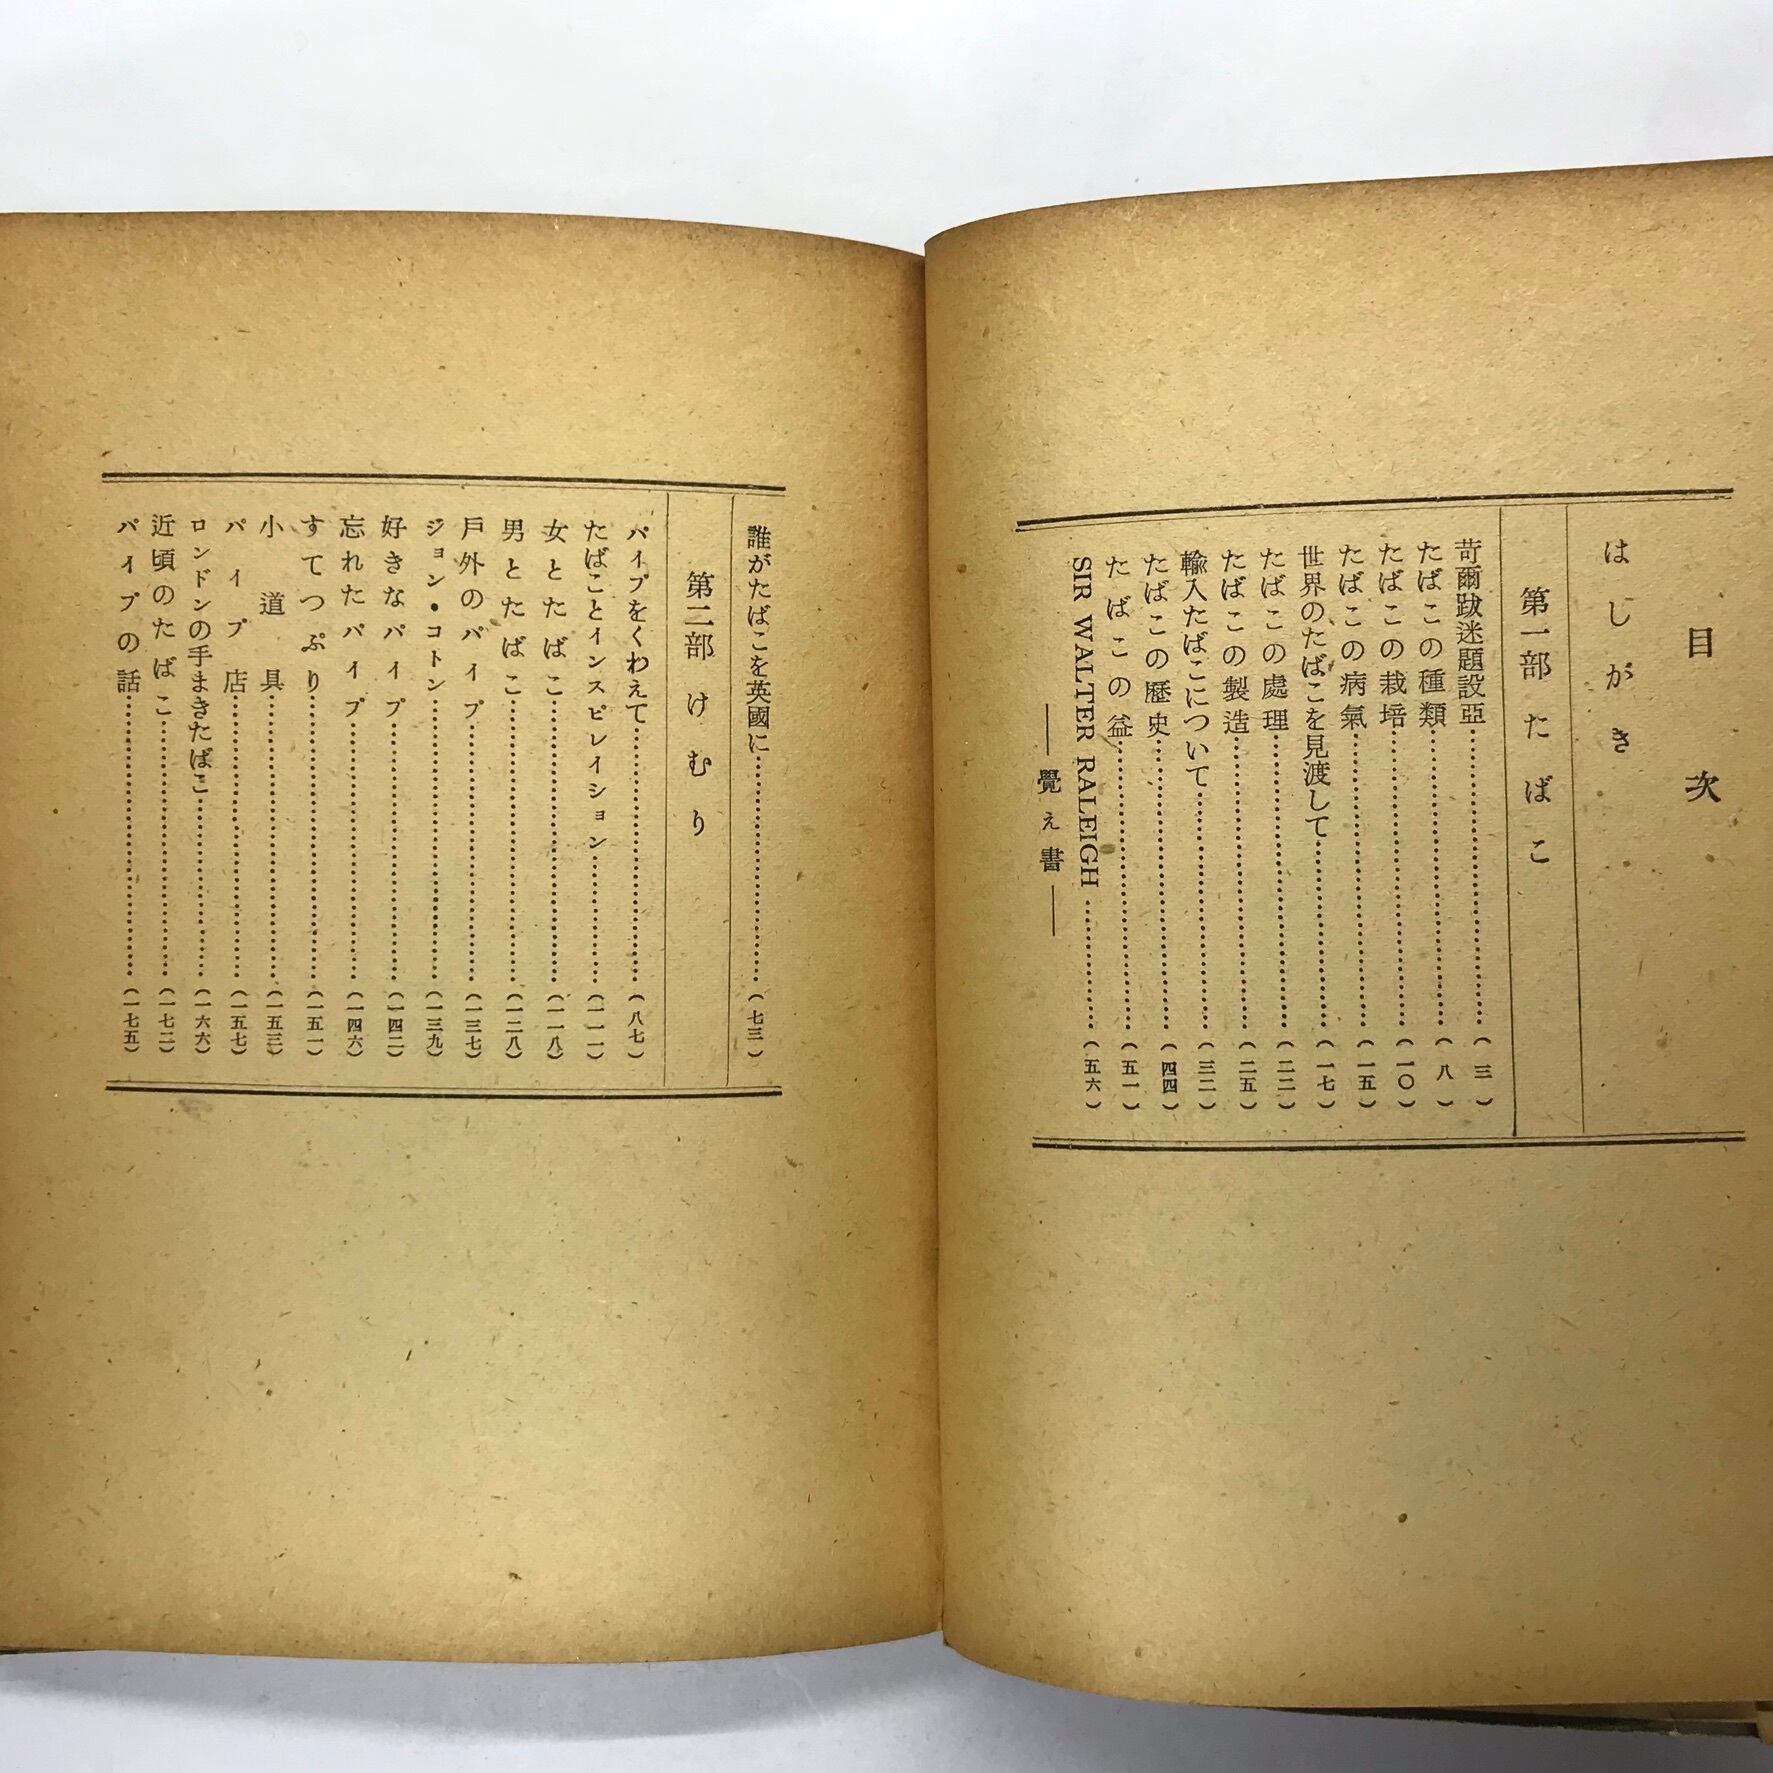 目次
はしがき
第一部 たばこ
苛爾跋迷題設亞……………………(三)
たばこの種類……………………(八)
たばこの栽培……………………(一〇)
たばこの病氣……………………(一五)
世界のたばこを見渡して……………………(一七)
たばこの處理……………………(二二)
たばこの製造……………………(二五)
輸入たばこについて……………………(三二)
たばこの歷史……………………(四四)
たばこの益……………………(五一)
SIR WALTER RALEIGH……………(五六)
――覺え書――
誰がたばこを英國に……………………(七三)
第二部 けむり
パイプをくわえて……………………(八七)
たばことインスピレイション……………(一一一)
女とたばこ……………………(一一八)
男とたばこ……………………(一二八)
戶外のパイプ……………………(一三七)
ジョン・コトン……………………(一三九)
好きなパイプ……………………(一四二)
忘れたパイプ……………………(一四六)
すてつぷり……………………(一五一)
小道具……………………(一五三)
パイプ店……………………(一五七)
ロンドンの手まきたばこ……………………(一六六)
近頃のたばこ……………………(一七二)
パイプの話……………………(一七五)